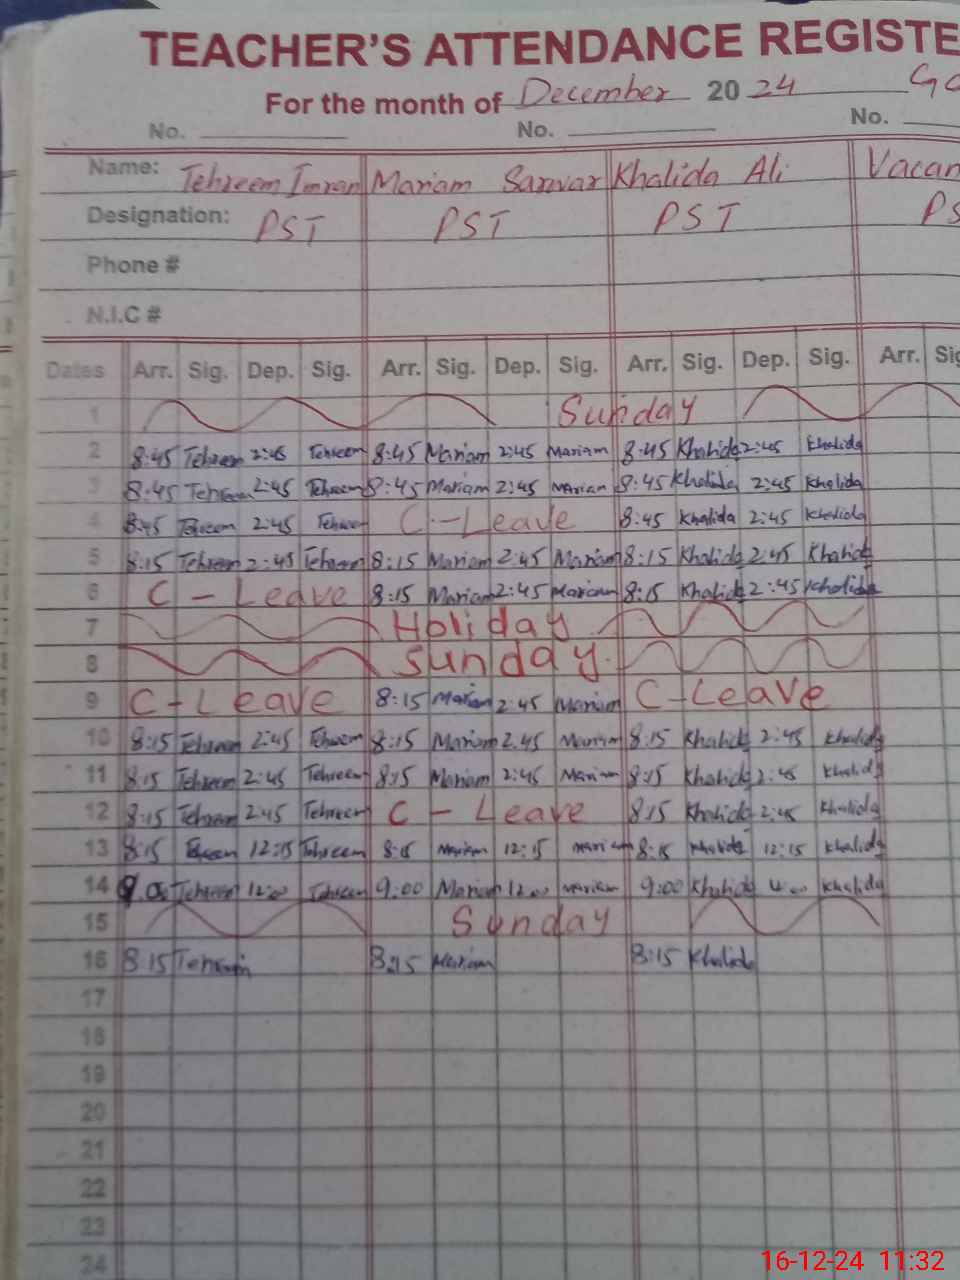 TEACHER'S ATTENDANCE REGISTE
For the month of December 2024 Go
No. No. No.
Name: Tehreem Imran Mariam Sarwar Khalida Ali Vacan
Designation: PST PST PST PS
Phone #
N.I.C #
Dates Arr. Sig. Dep. Sig. Arr. Sig. Dep. Sig. Arr. Sig. Dep. Sig. Arr. Sig
1 Sunday
2 8:45 Tehreem 2:45 Tehreem 8:45 Mariam 2:45 Mariam 8:45 Khalida 2:45 Khalida
3 8:45 Tehreem 2:45 Tehreem 8:45 Mariam 2:45 Mariam 8:45 Khalida 2:45 Khalida
4 8:45 Tehreem 2:45 Tehreem C-Leave 8:45 Khalida 2:45 Khalida
5 8:15 Tehreem 2:45 Tehreem 8:15 Mariam 2:45 Mariam 8:15 Khalida 2:45 Khalida
6 C - Leave 8:15 Mariam 2:45 Mariam 8:15 Khalida 2:45 Khalida
7 Holiday
8 Sunday.
9 C-Leave 8:15 Mariam 2:45 Mariam C-Leave
10 8:15 Tehreem 2:45 Tehreem 8:15 Mariam 2.45 Mariam 8:15 Khalida 2:45 Khalida
11 8:15 Tehreem 2:45 Tehreem 8:15 Mariam 2:45 Mariam 8:15 Khalida 2:45 Khalida
12 8:15 Tehreem 2:45 Tehreem C - Leave 8:15 Khalida 2:45 Khalida
13 8:15 Tehreem 12:15 Tehreem 8:15 Mariam 12:15 Mariam 8:15 Khalida 12:15 Khalida
14 9.00 Tehreem 12:00 Tehreem 9:00 Mariam 12:00 Mariam 9:00 Khalida Khalida
15 Sunday
16 8:15 Tehreem 8:15 Mariam 8:15 Khalida
17
18
19
20
21
22
23
24
16-12-24 11:32